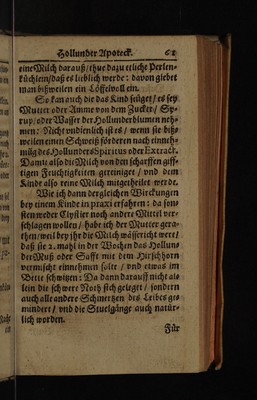 Hollunder Apoteck. 61
eine Milch darauß / thue dazu etliche Perlen-
küchlein / daß es lieblich werde: davon giebet
man bißweilen ein Löffelvoll ein.
So kan auch die das Kind seuget / es sey
Mutter oder Amme von dem Zucker / Sy-
rup / oder Wasser der Hollunderblumen neh-
men: Nicht undienlich ist es / wenn sie biß-
weilen einen Schweiß fördern nach einneh-
mung des Hollunders Spiritus oder Extract.
Damit also die Milch von den scharffen giff-
tigen Feuchtigkeiten gereiniget / vnd dem
Kinde also reine Milch mitgetheilet werde.
Wie ich dann dergleichen Wirckungen
bey einem Kinde in praxi erfahren: da son-
sten weder Clystier noch andere Mittel ver-
schlagen wollen / habe ich der Mutter gera-
then / weil bey ihr die Milch wässericht were /
daß sie 2. mahl in der Wochen das Hollun-
der Muß oder Safft mit dem Hirschhorn
vermischt einnehmen solte / vnd etwas im
Bette schwitzen: Da dann darauff nicht al-
lein die schwere Noth sich geleget / sondern
auch alle andere Schmertzen des Leibes ge-
mindert / vnd die Stuelgänge auch natür-
lich worden.
Für